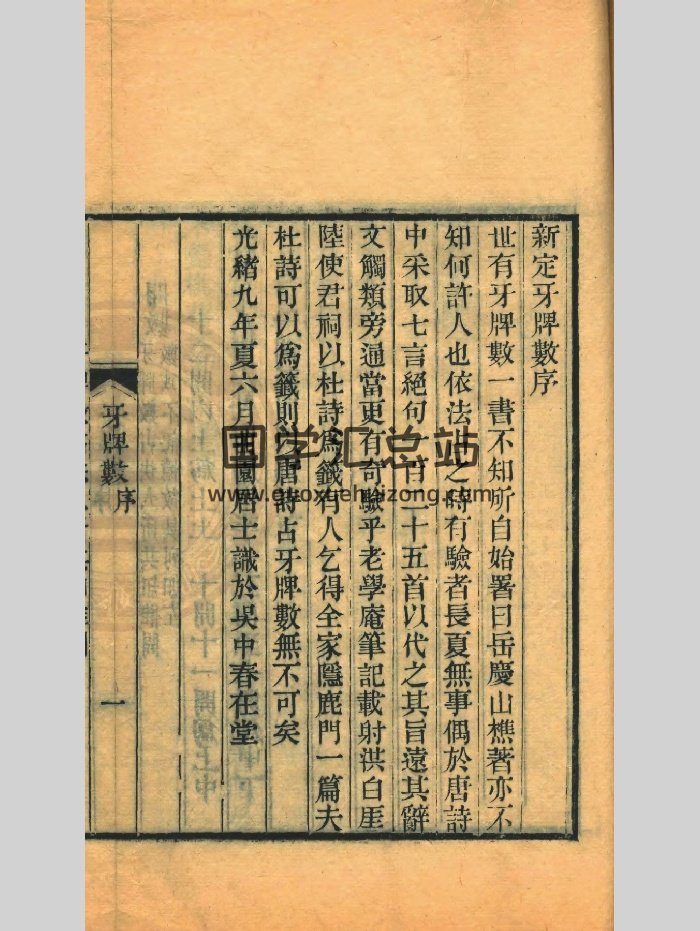 新定牙牌數序
世有牙牌數一書不知所自始署曰岳慶山樵著亦不
知何許人也依法占之時有驗者長夏無事偶於唐詩
中采取七言絕句一百二十五首以代之其旨遠其辭
文觸類旁通當更有奇驗乎老學庵筆記載射洪白厓
陸使君祠以杜詩爲籤有人乞得全家隱鹿門一篇夫
杜詩可以爲籤則以唐詩占牙牌數無不可矣
光緒九年夏六月曲園居士識於吳中春在堂
牙牌數序
一
国学汇总站
www.guoxuehuizong.com